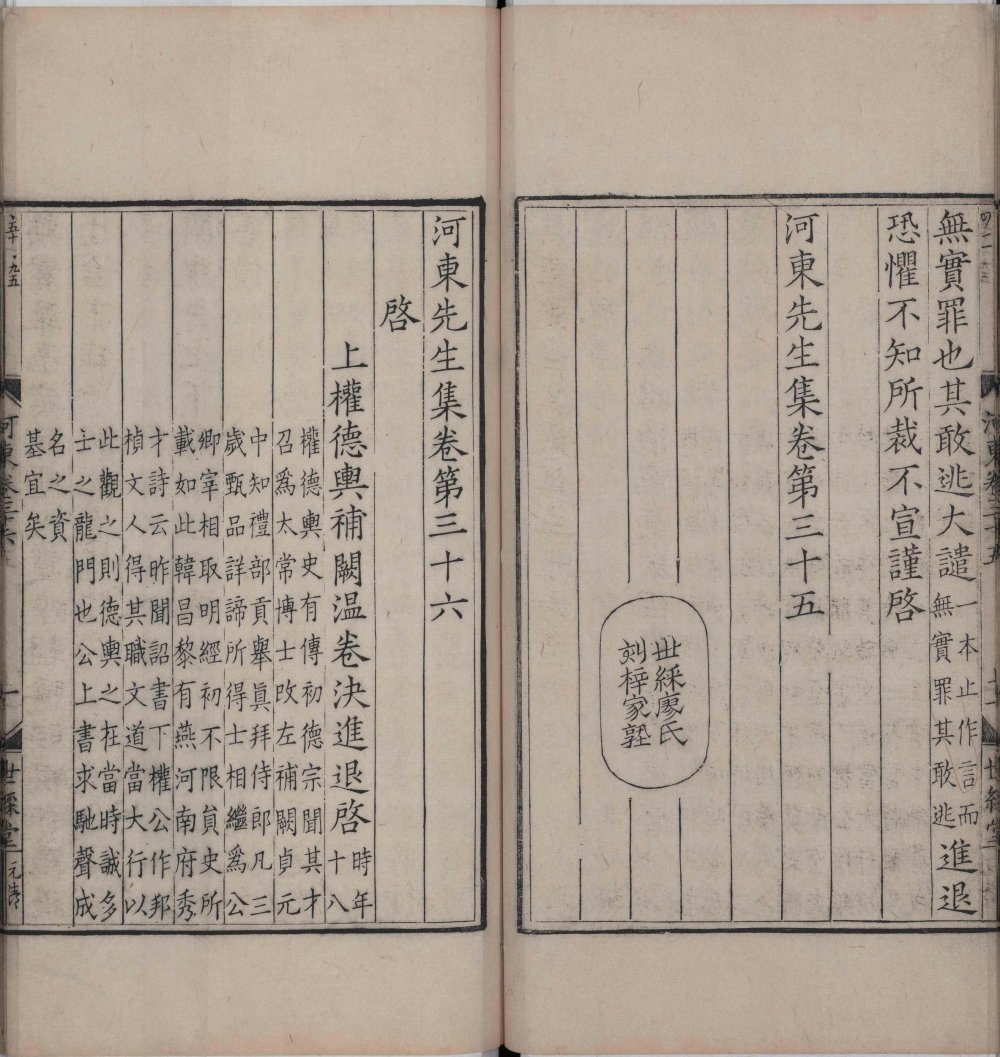 無實罪也其敢逃大譴一本止作言而無實罪其敢逃進退
恐懼不知所裁不宣謹啓
河東先生集卷第三十五
世綵廖氏
刻梓家塾
河東先生集卷第三十六
啓
上權德輿補闕温卷決進退啓時年十八
權德輿史有傳初德宗聞其才
召爲太常博士攺左補闕貞元
中知禮部貢舉眞拜侍郎凡三
歲甄品詳諦所得士相繼爲公
卿宰相取明經初不限員史所
載如此韓昌黎有燕河南府秀
才詩云昨聞詔書下權公作邦
楨文人得其職文道當大行以
此觀之則德輿之在當時誠多
士之龍門也公上書求馳聲成
名之資
基宜矣
河東卷三十六
一
世綵堂